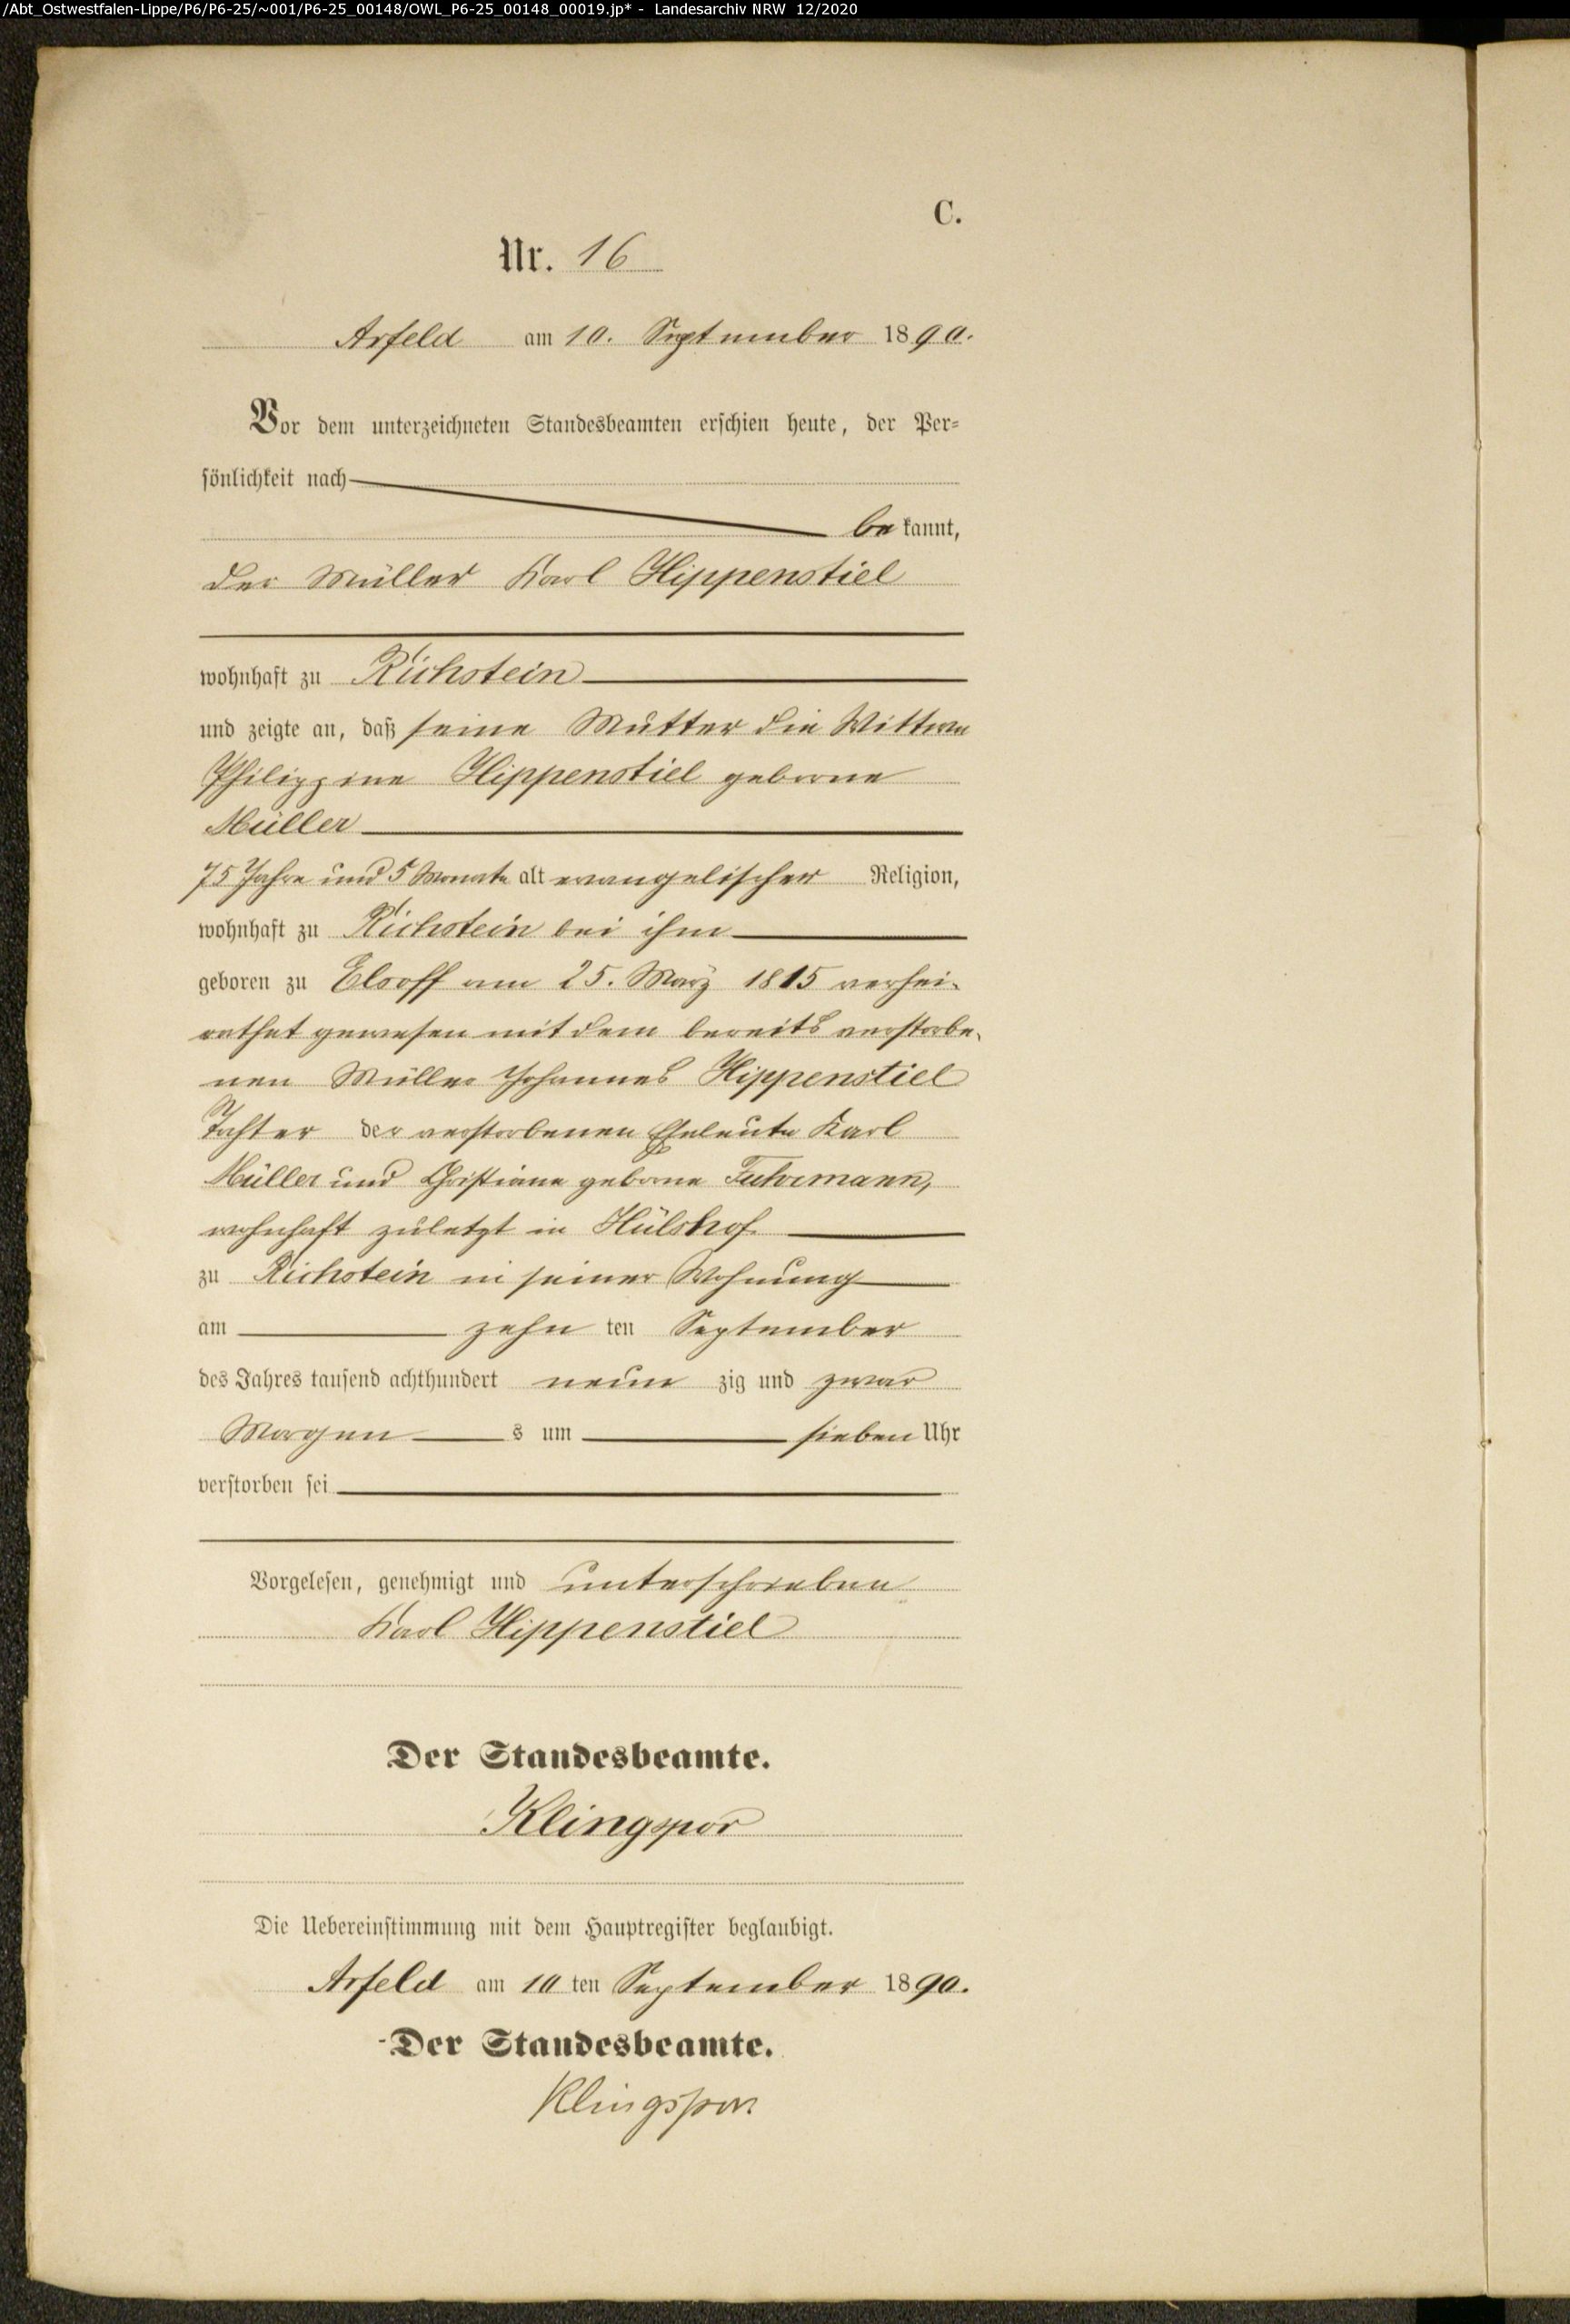 /Abt_Ostwestfalen-Lippe/P6/P6-25/~001/P6-25_00148/OWL_P6-25_00148_00019.jp* - Landesarchiv NRW 12/2020
C.
Nr. 16
Arfeld am 10. September 1890.
Vor dem unterzeichneten Standesbeamten erschien heute, der Per=
sönlichkeit nach
be kannt,
der Müller Karl Hippenstiel
wohnhaft zu Richstein
und zeigte an, daß seine Mutter die Wittwe
Philippine Hippenstiel geborne
Müller
75 Jahre und 5 Monate alt evangelischer Religion,
wohnhaft zu Richstein bei ihm
geboren zu Elsoff am 25. März 1815 verhei-
rathet gewesen mit dem bereits verstorbe-
nen Müller Johannes Hippenstiel
Tochter der verstorbenen Eheleute Karl
Müller und Christiane geborne Fuhrmann,
wohnhaft zuletzt in Hülshof
zu Richstein in seiner Wohnung
am zehn ten September
des Jahres tausend achthundert neun zig und zwar
Morgen s um sieben Uhr
verstorben sei
Vorgelesen, genehmigt und unterschrieben
Karl Hippenstiel
Der Standesbeamte.
Klingspor
Die Uebereinstimmung mit dem Hauptregister beglaubigt.
Arfeld am 10 ten September 1890.
Der Standesbeamte.
Klingspor